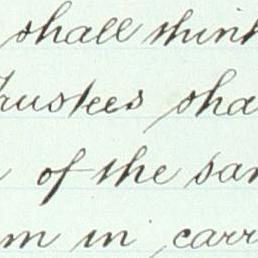 shall think
Trustees sha
of the sam
m in carr